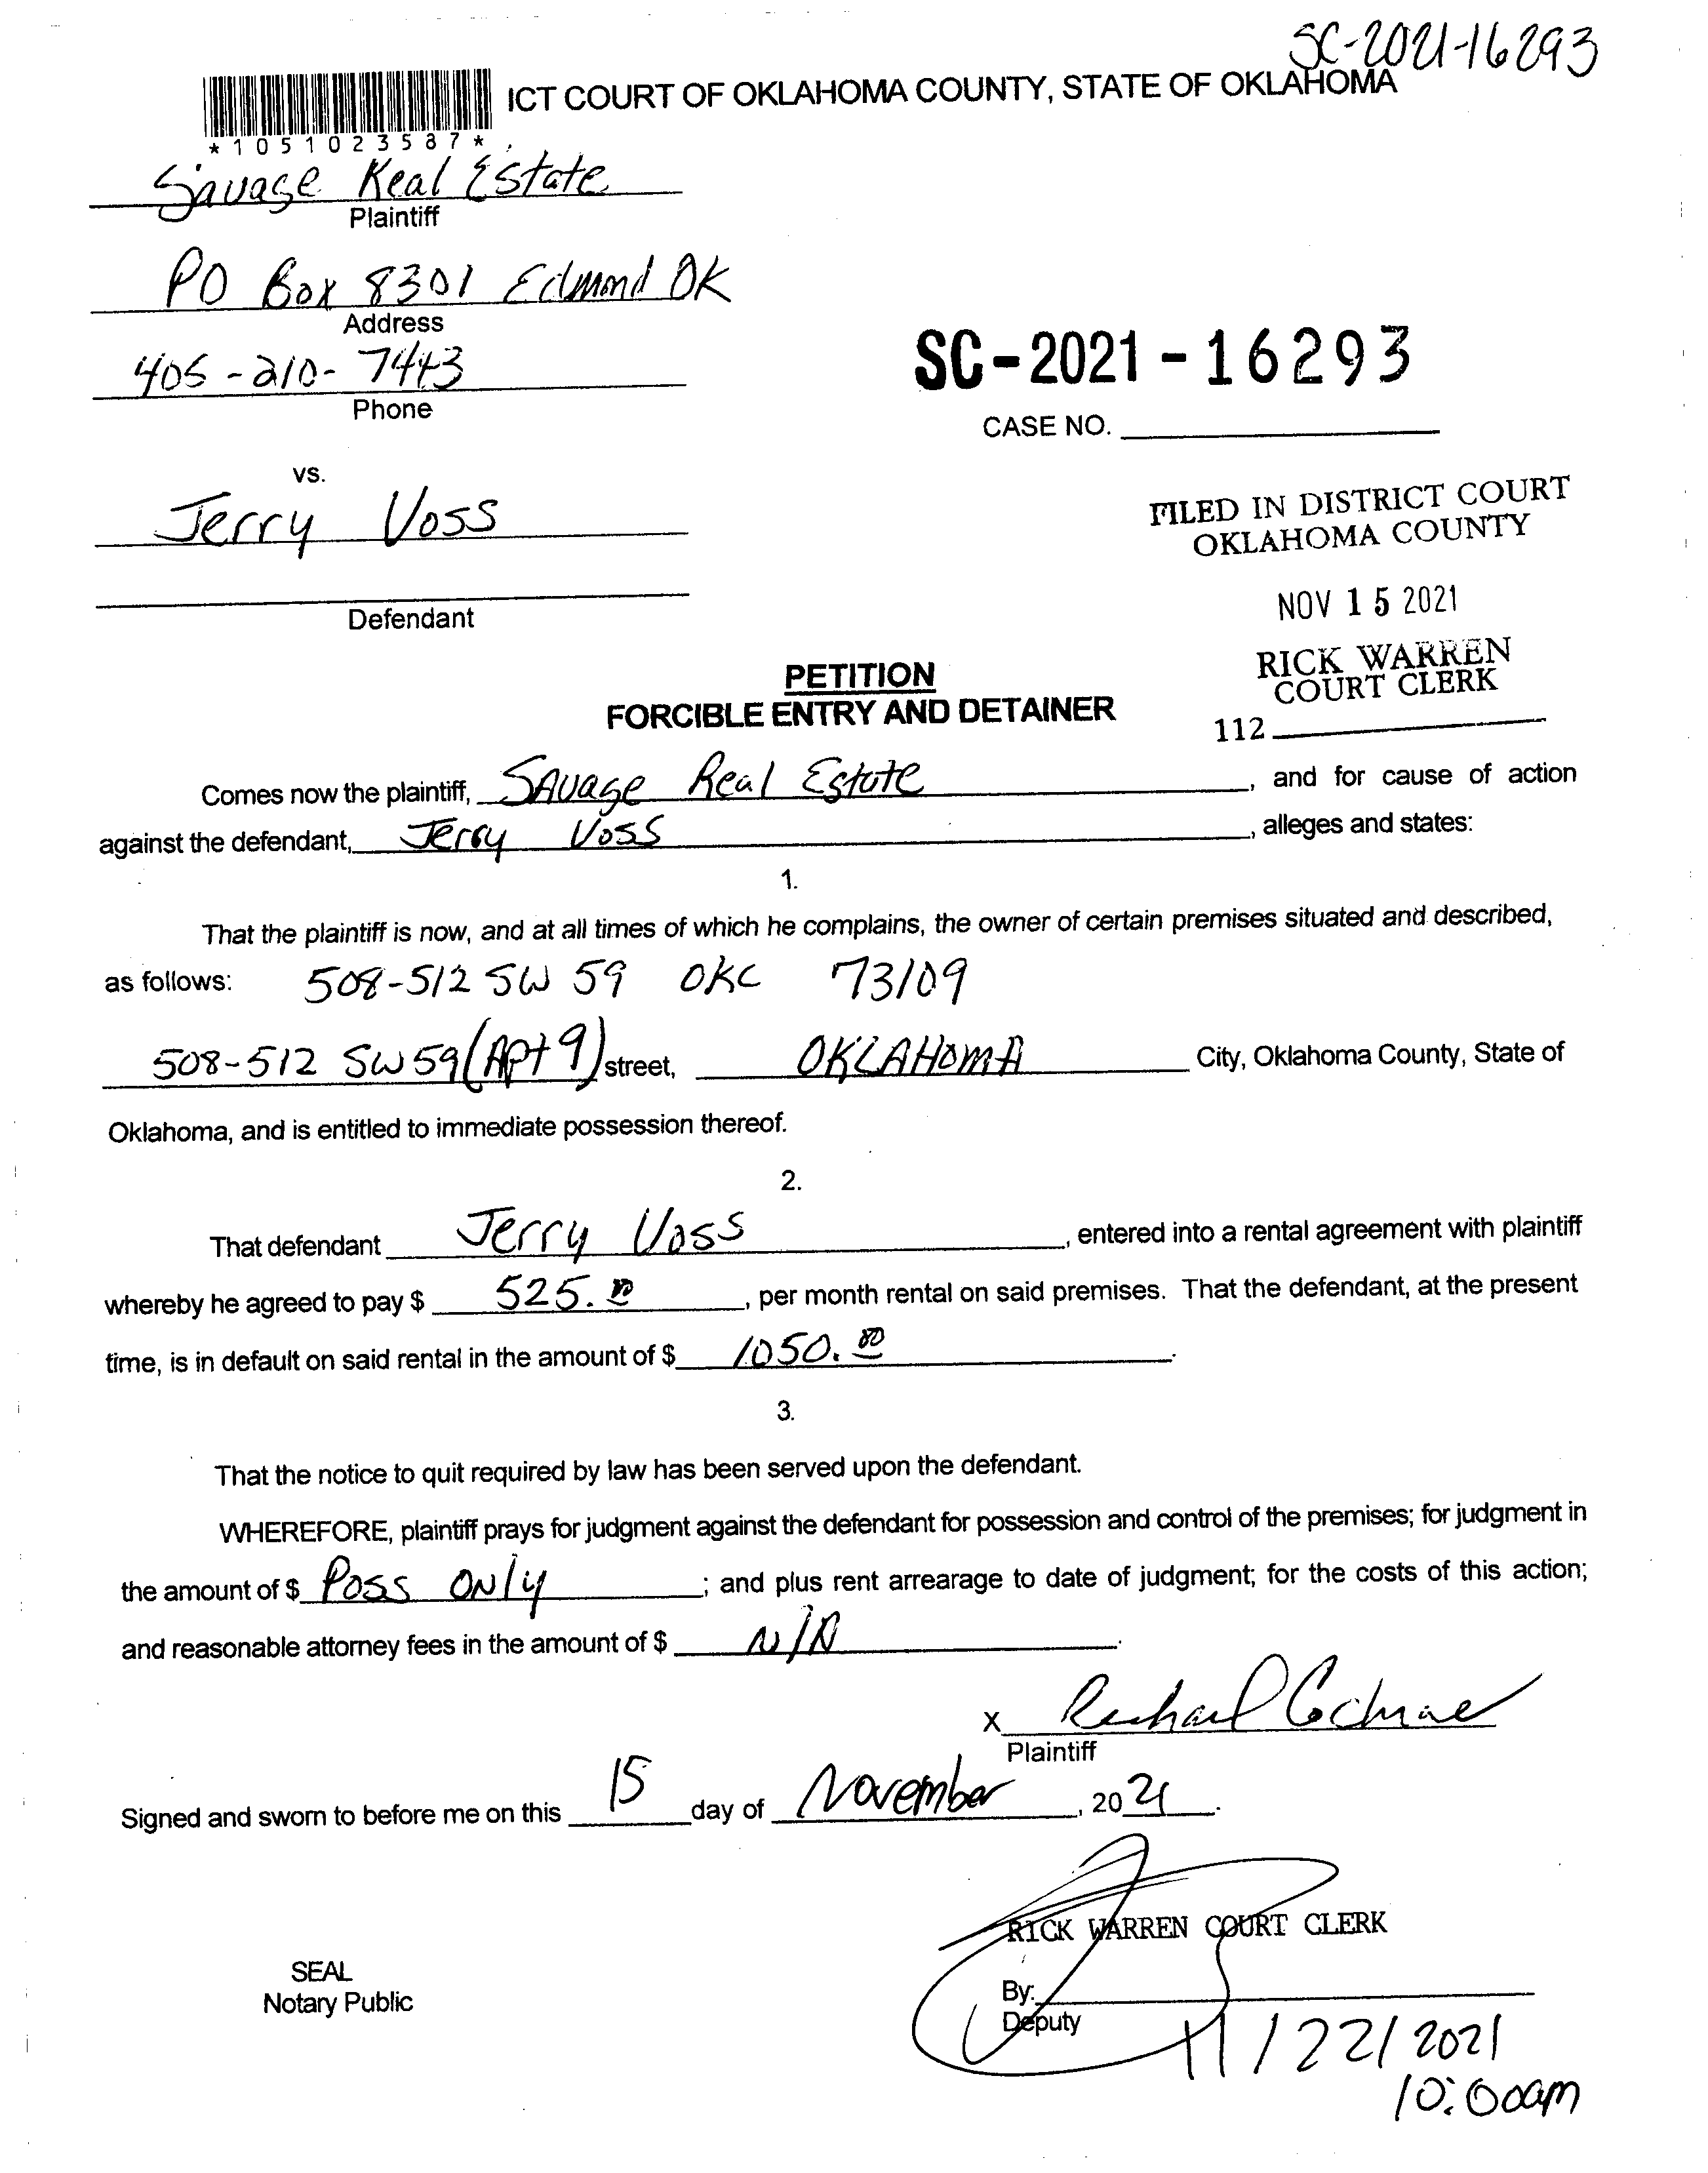 SC-2021-16293
ICT COURT OF OKLAHOMA COUNTY, STATE OF OKLAHOMA
*1051023587*
Savage Real Estate
Plaintiff
PO Box 8301 Edmond OK
Address
405-210-7443
Phone
SC-2021-16293
CASE NO.
vs.
Jerry Voss
Defendant
FILED IN DISTRICT COURT
OKLAHOMA COUNTY
NOV 15 2021
RICK WARREN
COURT CLERK
112
PETITION
FORCIBLE ENTRY AND DETAINER
Comes now the plaintiff, SAvage Real Estate, and for cause of action
against the defendant, Jerry Voss, alleges and states:
1.
That the plaintiff is now, and at all times of which he complains, the owner of certain premises situated and described,
as follows: 508-512 SW 59 OKC 73109
508-512 SW 59 (Apt 9) street, OKLAHOMA City, Oklahoma County, State of
Oklahoma, and is entitled to immediate possession thereof.
2.
That defendant Jerry Voss, entered into a rental agreement with plaintiff
whereby he agreed to pay $ 525.00, per month rental on said premises. That the defendant, at the present
time, is in default on said rental in the amount of $ 1050.00.
3.
That the notice to quit required by law has been served upon the defendant.
WHEREFORE, plaintiff prays for judgment against the defendant for possession and control of the premises; for judgment in
the amount of $ Poss ONly; and plus rent arrearage to date of judgment; for the costs of this action;
and reasonable attorney fees in the amount of $ N/A.
x
Plaintiff
Signed and sworn to before me on this 15 day of November, 2021.
RICK WARREN COURT CLERK
SEAL
Notary Public
By:
Deputy
11/22/2021
10:00am